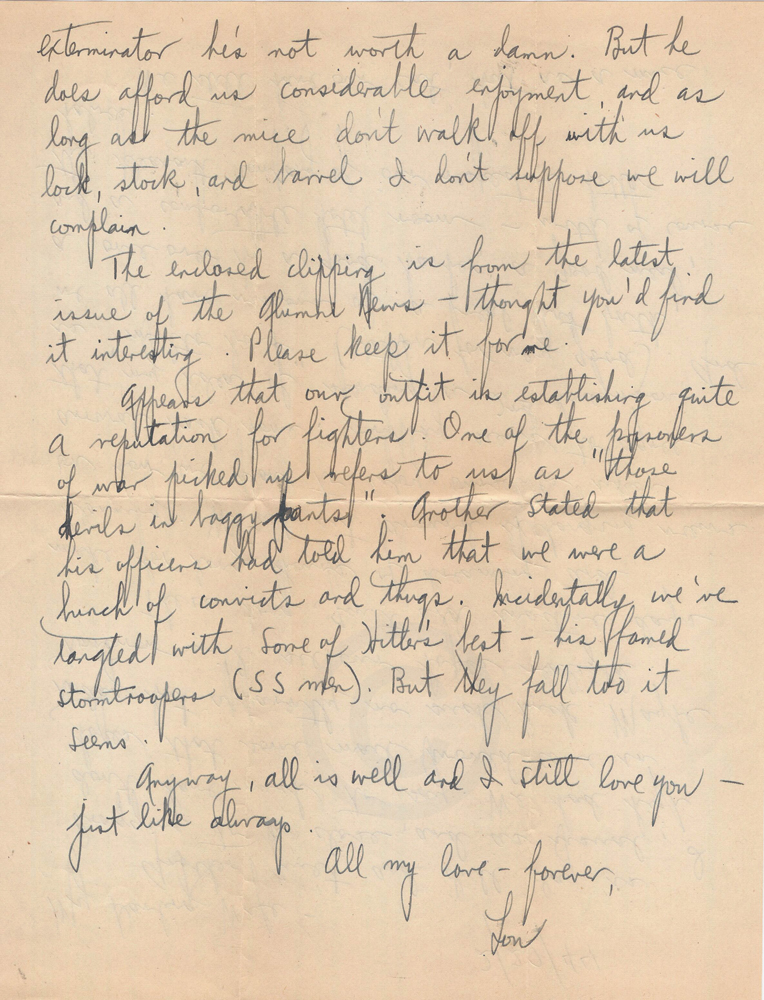 exterminator he's not worth a damn. But he
does afford us considerable enjoyment, and as
long as the mice don't walk off with us
lock, stock, and barrel I don't suppose we will
complain.
The enclosed clipping is from the latest
issue of the Alumni News – thought you'd find
it interesting. Please keep it for me.
Appears that our outfit is establishing quite
a reputation for fighters. One of the prisoners
of war picked up refers to us as "those
devils in baggy pants". Another stated that
his officers had told him that we were a
bunch of convicts and thugs. Incidentally we've
tangled with some of Hitler's best – his famed
stormtroopers (SS men). But they fall too it
seems.
Anyway, all is well and I still love you –
just like always.
All my love – forever,
Lou